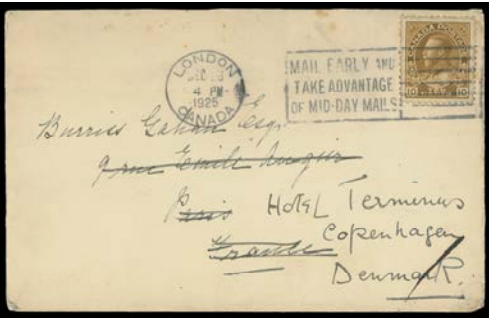 LONDON
DEC 28
4 PM
1925
CANADA
MAIL EARLY AND
TAKE ADVANTAGE
OF MID-DAY MAILS
CANADA POSTAGE
10 10
Burriss Gahan Esq.
9 rue Emile Augier
Paris
France
Hotel Terminus
Copenhagen
Denmark.